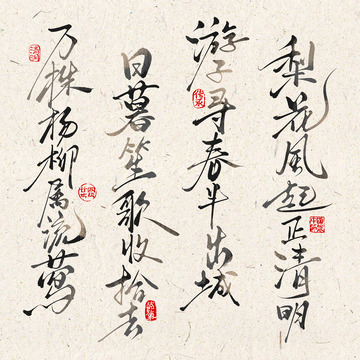 梨花风起正清明
游子寻春半出城
日暮笙歌收拾去
万株杨柳属流莺